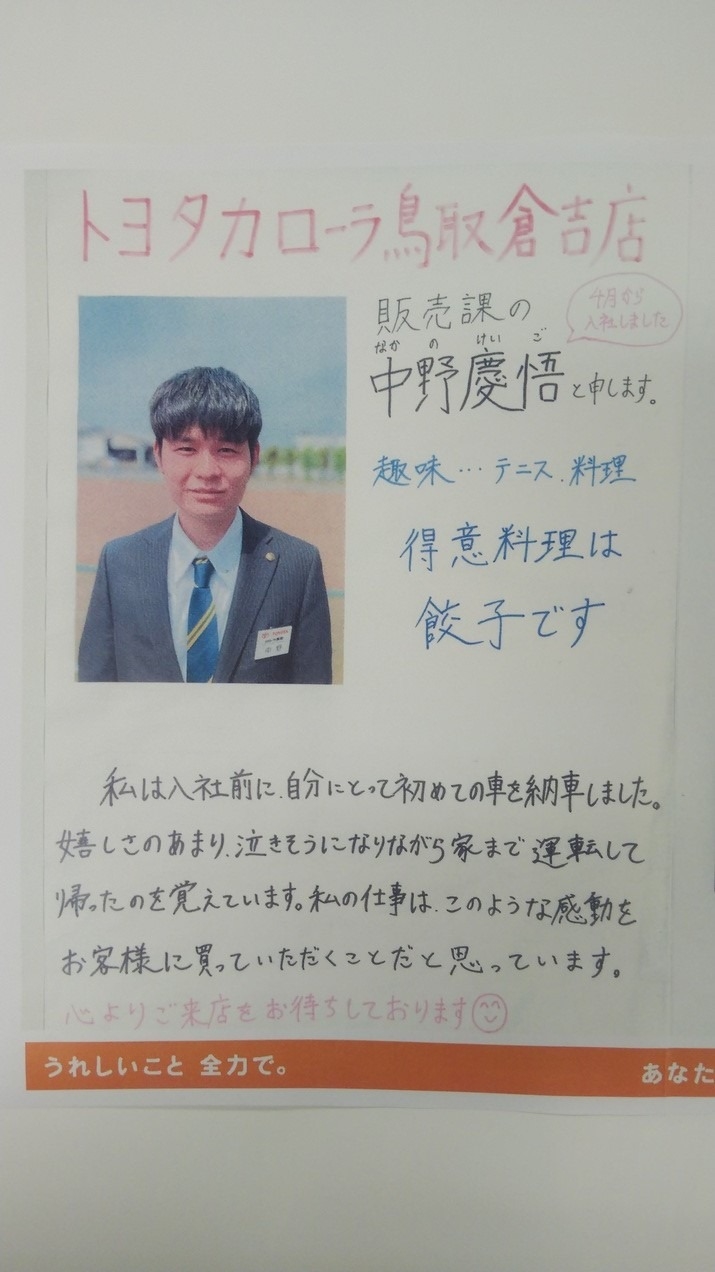 トヨタカローラ鳥取倉吉店
販売課の
4月から
入社しました
なか の けい ご
中野慶悟と申します。
趣味…テニス、料理
得意料理は
餃子です
TOYOTA
中野
私は入社前に、自分にとって初めての車を納車しました。
嬉しさのあまり、泣きそうになりながら家まで運転して
帰ったのを覚えています。私の仕事は、このような感動を
お客様に買っていただくことだと思っています。
心よりご来店をお待ちしております
うれしいこと 全力で。
あなた